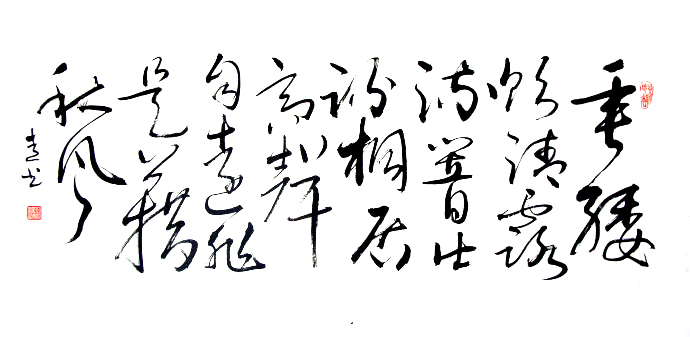 垂緌
飲清露
流響出
疏桐居
高聲
自遠非
是藉
秋風